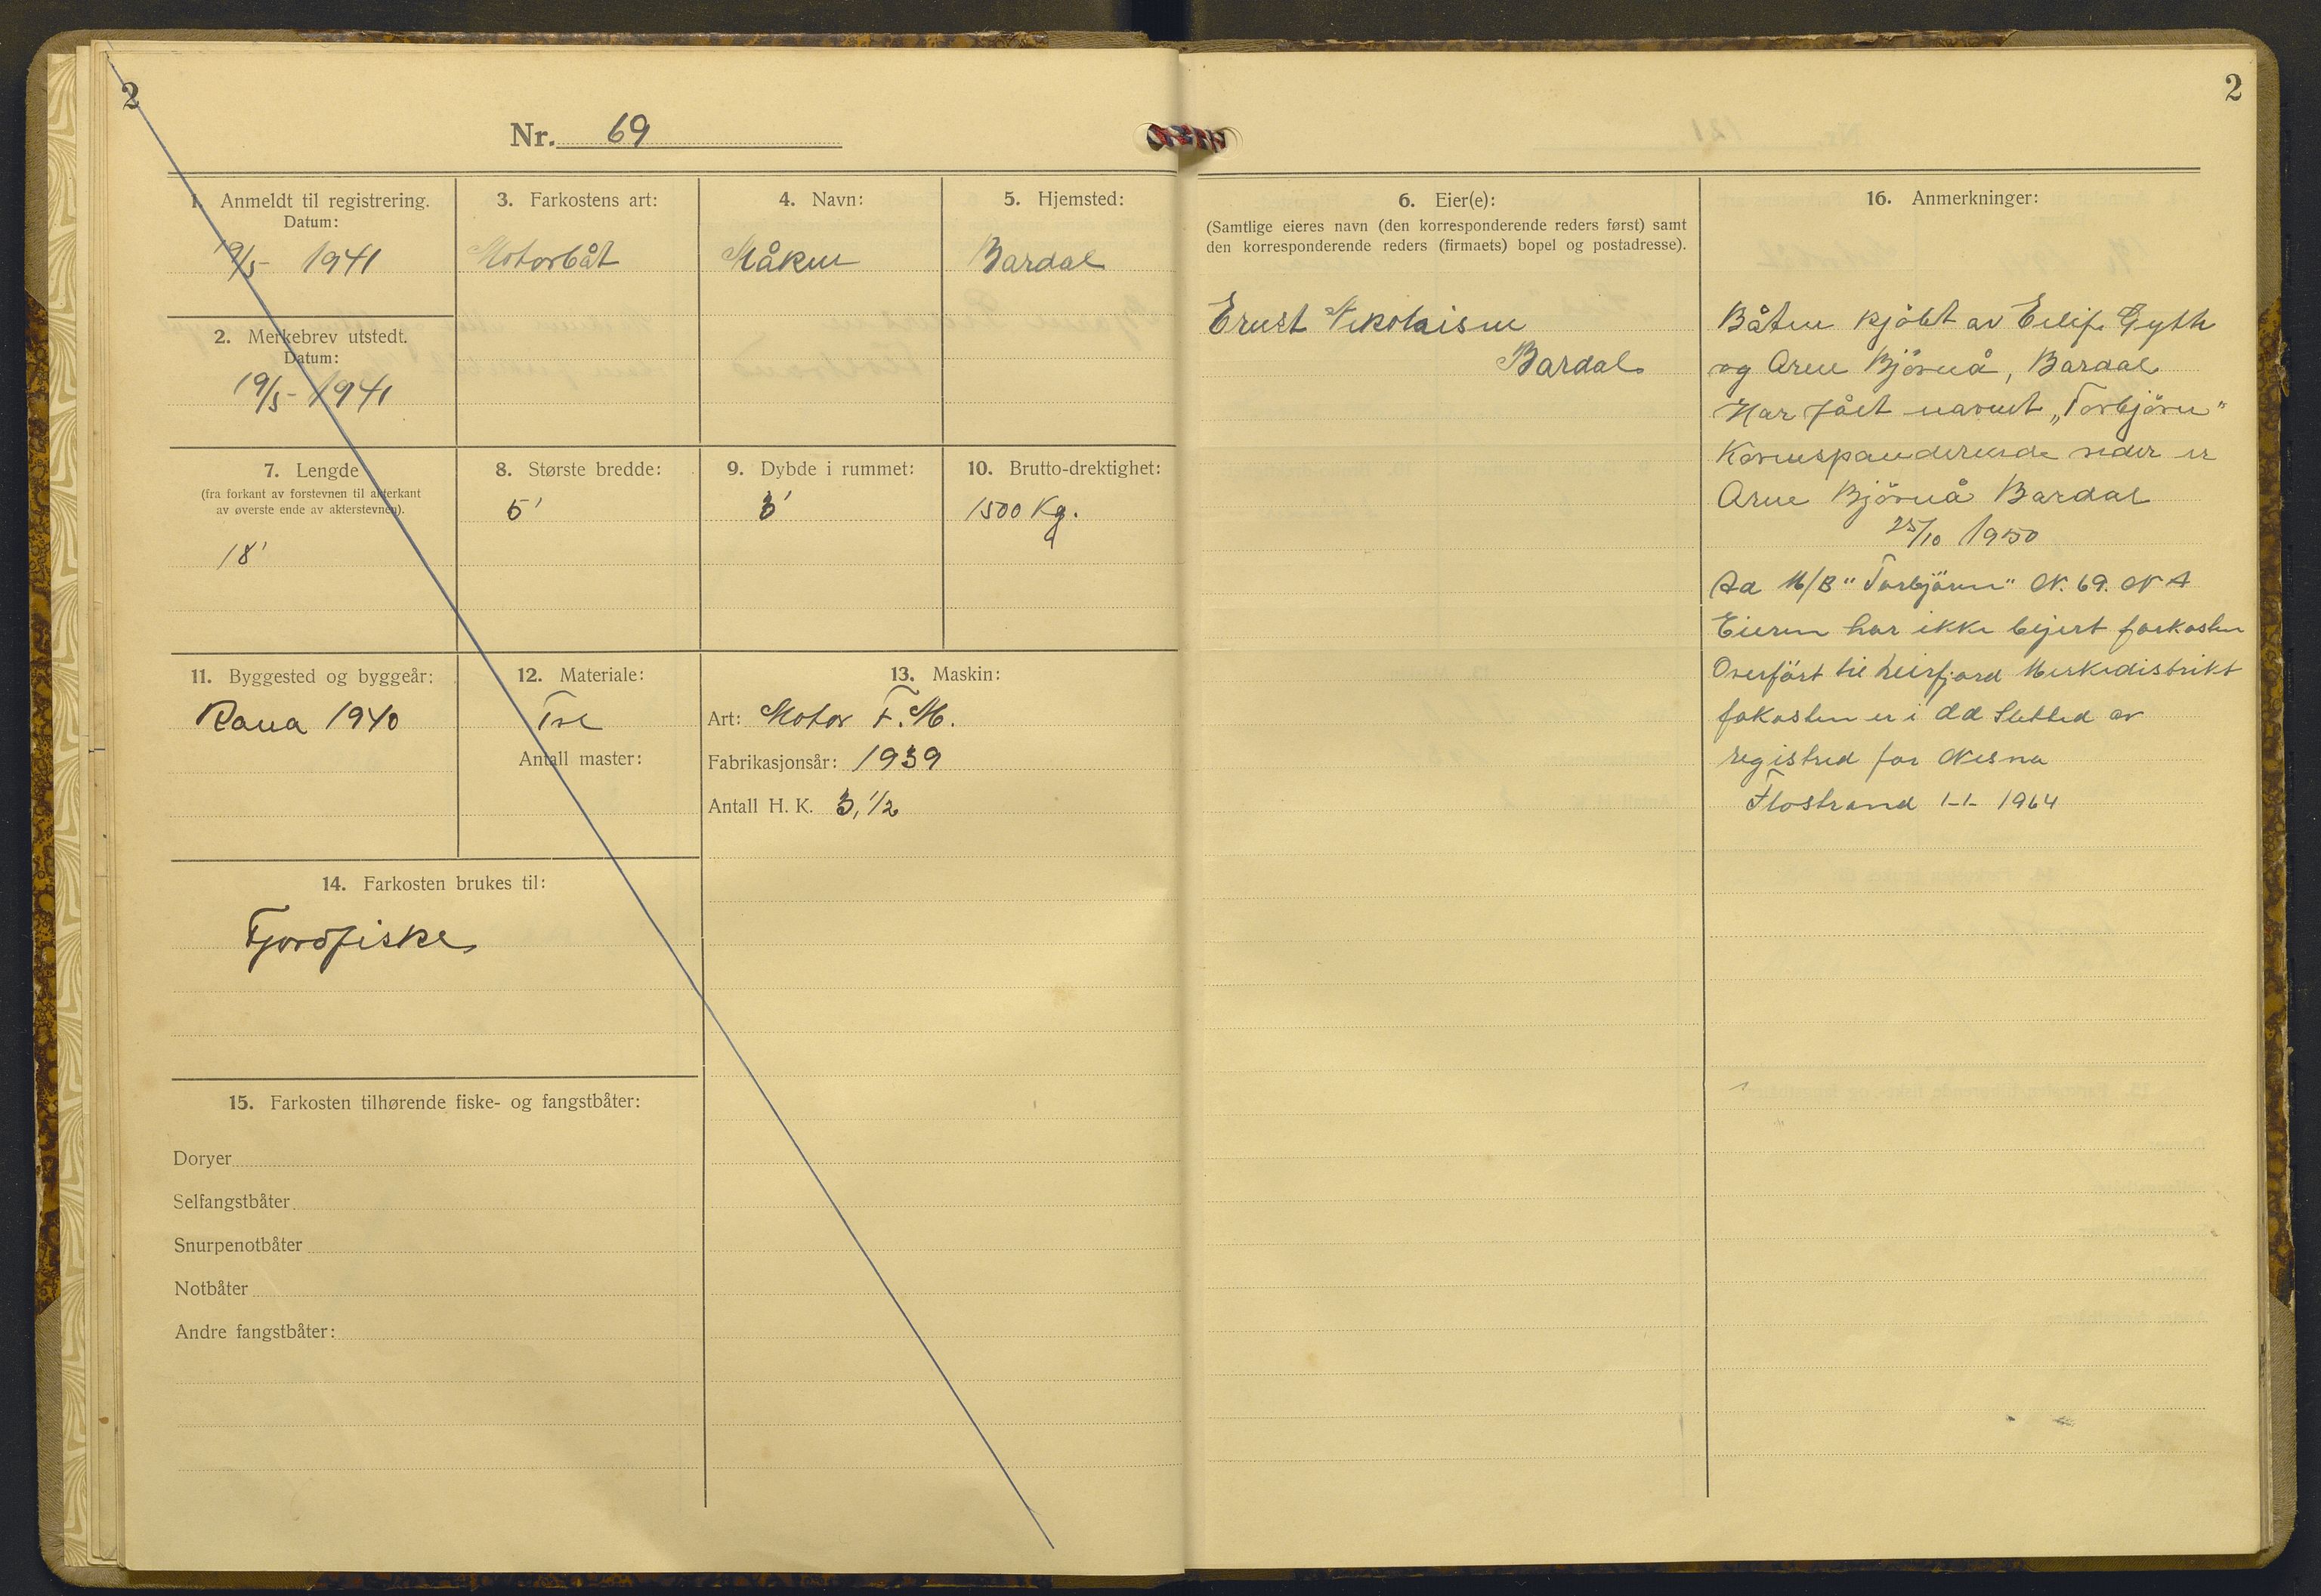 2
Nr. 69
1. Anmeldt til registrering.
Datum:
19/5- 1941
2. Merkebrev utstedt.
Datum:
19/5- 1941
3. Farkostens art:
Motorbåt
4. Navn:
Måken
5. Hjemsted:
Bardal
7. Lengde
(fra forkant av forstevnen til akterkant
av øverste ende av akterstevnen).
18'
8. Største bredde:
5'
9. Dybde i rummet:
3'
10. Brutto-drektighet:
1500 Kg.
11. Byggested og byggeår:
Rana 1940
12. Materiale:
Tre
Antall master:
13. Maskin:
Art: Motor F.M.
Fabrikasjonsår: 1939
Antall H. K. 3, 1/2
14. Farkosten brukes til:
Fjordfiske
15. Farkosten tilhørende fiske- og fangstbåter:
Doryer
Selfangstbåter
Snurpenotbåter
Notbåter
Andre fangstbåter:
2
6. Eier(e):
(Samtlige eieres navn (den korresponderende reders først) samt
den korresponderende reders (firmaets) bopel og postadresse).
Ernst Nikolaisen
Bardal
16. Anmerkninger:
Båten kjöbt av Eilif Gyth
og Arne Bjørnå, Bardal
Har fået navnet „Torbjörn"
Korrespanderende reder er
Arne Björnå Bardal
25/10 1950
Ad M/B "Torbjörn" N. 69. N A
Eieren har ikke bejert farkosten
Overfört til Leirfjord Merkedistrikt
fakosten er i dd Sletted av
registred for Nesna
Flostrand 1-1- 1964